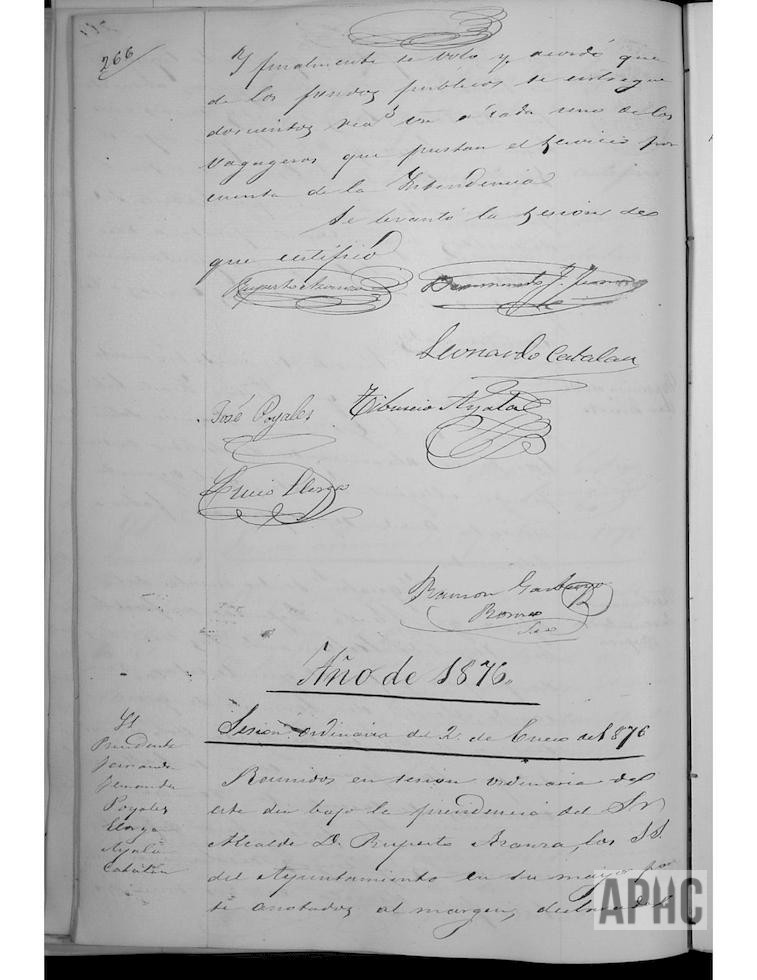 266
Y finalmente se voto y acordó que
de los fondos publicos se entregue
doscientos rea.s vn a cada uno de los
vagageros que prestan el servicio por
cuenta de la Intendencia
Se levantó la sesion de
que certifico
Ruperto
Leonardo Catalan
José Poyales Tiburcio Ayala
Lucio Llorza
Ramon
Romeo
Srio
Año de 1876.
Sesion ordinaria del 2 de Enero de 1876
SS
Presidente
Hernandez
Poyales
Llorza
Ayala
Catalan
Reunidos en sesion ordinaria del
este dia bajo la presidencia del Sr
Alcalde D. Ruperto los SS.
del Ayuntamiento en su mayor par
te anotados al margen,
APHC